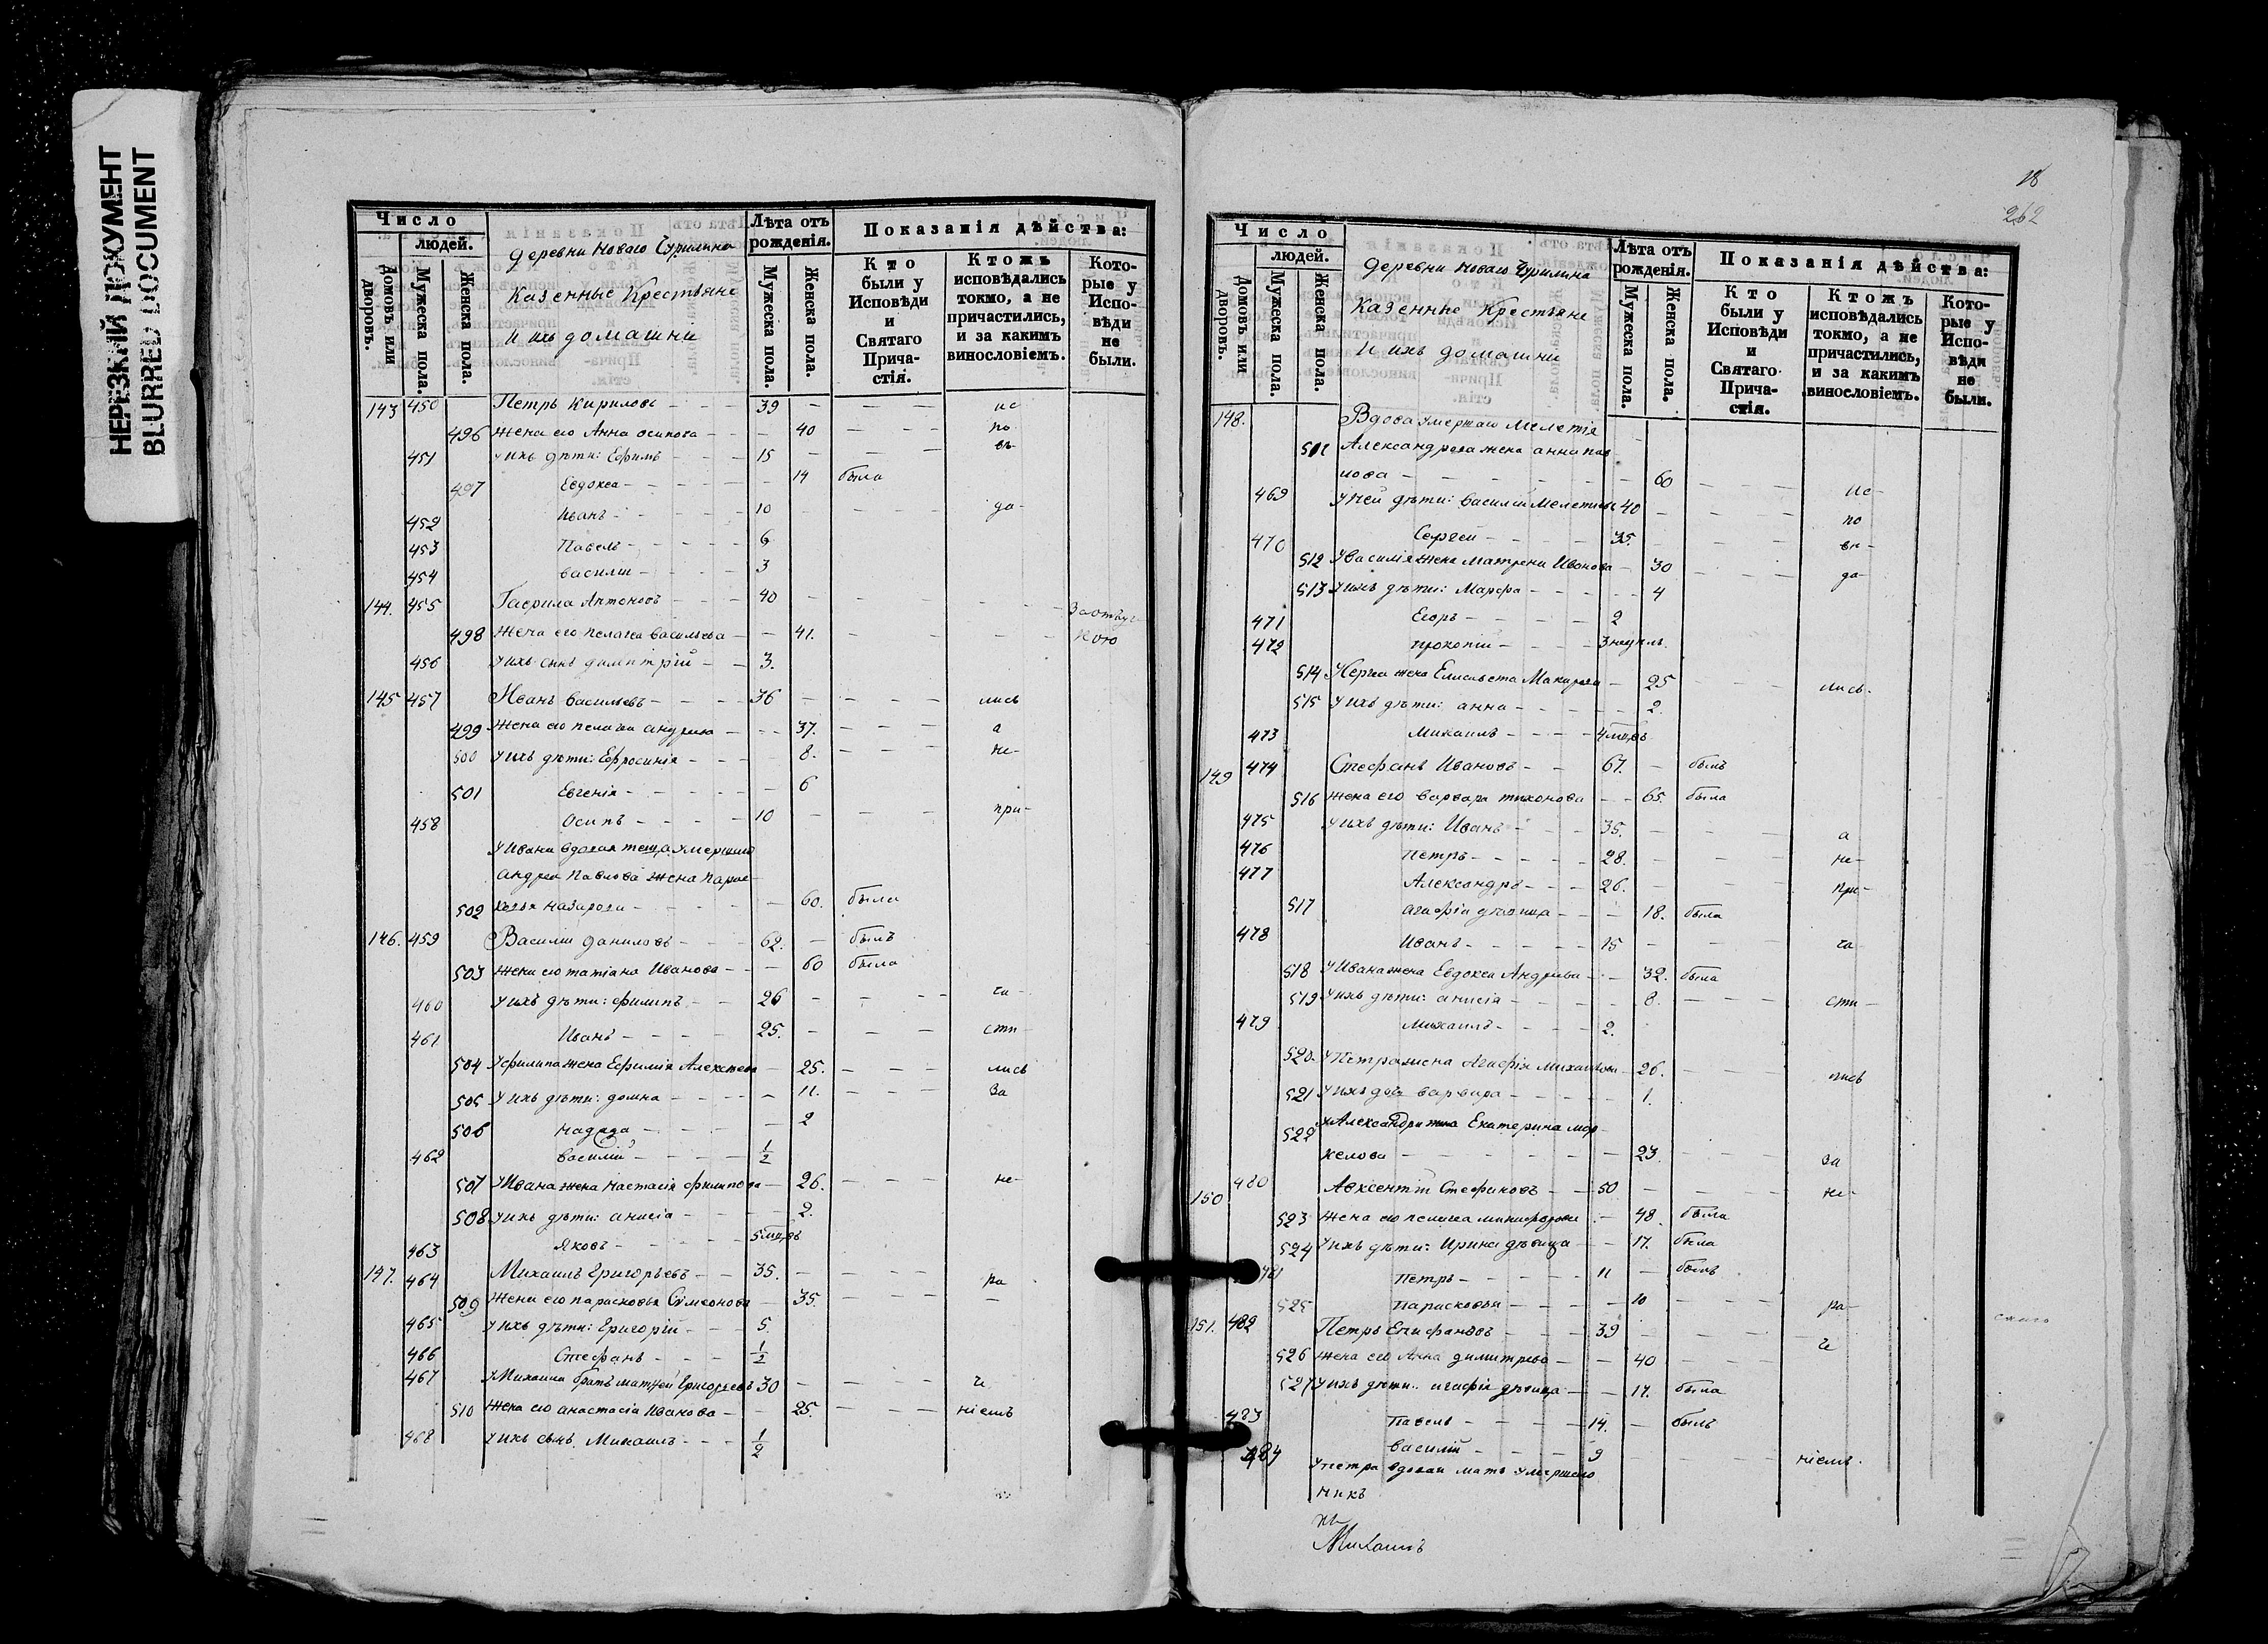 НЕРЕЗКИЙ ДОКУМЕНТ
BLURRED DOCUMENT
Число
людей.
Домовъ или дворовъ.
Мужеска пола.
Женска пола.
деревни Новаго Чурилина
Казенные Крестьяне
И ихъ домашни
Лѣта отъ рожденія.
Мужеска пола.
Женска пола.
Показанія дѣйства:
Кто были у Исповѣди и Святаго Причастія.
Ктожъ исповѣдались токмо, а не причастились, и за какимъ винословіемъ.
Которые у Исповѣди не были.
143 450 Петръ Кириловъ - - - 39 - - - ис
496 Жена его Анна осипова - - - 40 - - - по
451 У ихъ дѣти: Ефимъ - - - 15 - - - вѣ-
497 Евдокеа - - - - 14 была
452 Иванъ - - - 10 да-
453 Павелъ - - - 6
454 Василии - - - 3
144. 455 Гаврила Антоновъ - - - 40 - - -
498 Жена его пелагеа Васильева - - 41. - - -
456 У ихъ сынъ димитрій - - 3.
145 457 Иванъ Васильевъ - - - 36 - - - лись
499 Жена его пелагеа андреева - - - 37. - - - а
500 У ихъ дѣти: Ефросинія - - - 8. - - - не-
501 Евгенія - - - - 6
458 Осипъ - - - 10 - - - при-
У Ивана вдовая теща умершаго
андрея Павлова жена парас-
502 ковья назарова - - - 60. была
146. 459 Василии даниловъ - - - 62. - былъ
503 жена его татіана Иванова - - - 60 была
460 У ихъ дѣти: филипъ - - 26 - - - ча-
461 Иванъ - - - 25. - - - сти-
504 У филипа жена Ефимія Алексѣева - 25. - - - лись
505 У ихъ дѣти: домна - - - 11. - - за
506 Надежда - - - 2
462 Василій - - - 1/2
507 У Ивана жена Настасія филипова - 26. - - - не-
508 У ихъ дѣти: анисіа - - - 2.
463 Яковъ - - - 5 мцовъ
147. 464 Михаилъ Григорьевъ - - 35. - - - ра
509 Жена его парасковья Симеонова - 35. - - -
465 У ихъ дѣти: Григорій - - - 5.
466 Стефанъ - - - 1/2
467 У Михаила братъ матѳей Григорьевъ 30 - - - - че
510 Жена его анастасіа Иванова - - 25. - - - ніемъ
468 У ихъ сынъ Михаилъ - - - 1/2
18
262
Число
людей.
Домовъ или дворовъ.
Мужеска пола.
Женска пола.
деревни Новаго Чурилина
Казенные Крестьяне
И ихъ домашни
Лѣта отъ рожденія.
Мужеска пола.
Женска пола.
Показанія дѣйства:
Кто были у Исповѣди и Святаго Причастія.
Ктожъ исповѣдались токмо, а не причастились, и за какимъ винословіемъ.
Которые у Исповѣди не были.
148. Вдова умершаго Мелетія
511 Александрова жена анна пав
лова - - - - 60 - - -
469 У ней дѣти: Василій Мелетіевъ 40 - - - ис-
по
470 Сергеи - - - 35. - - - вѣ-
512 У Василія жена Матрена Иванова - 30 - - - да-
513 У ихъ дѣти: Марѳа - - - - 4
471 Егоръ - - - 2
472 прокопіи - - - 3 недѣль.
514 У Сергеа жена Елисавета Макарова - 25 - - - лись.
515 У ихъ дѣти: анна - - - - 2.
473 Михаилъ - - - 4 мцовъ
149 474 Стефанъ Ивановъ - - 67. - былъ
516 Жена его варвара тихонова - - 65. была
475 У ихъ дѣти: Иванъ - - - 35. - - - а
476 Петръ - - - 28. - - - не-
477 Александръ - - - 26. - - - при-
517 агафіа дѣвица - - - 18. была
478 Иванъ - - - 15 - - - ча-
518 У Ивана жена Евдокеа Андреева - - 32. была
519 У ихъ дѣти: анисіа - - - - 8. - - - сти-
479 Михаилъ - - - 2.
520. У Петра жена Агафіа Михаилова - 26. - - - лись
521 У ихъ дочь варвара - - - - 1.
522 У Александра жена Екатерина мар-
келова - - - - 23. - - - за
150 480 Авксентій Стефановъ - - 50 - - - не-
523 Жена его пелагеа никифорова - - 48. была
524 У ихъ дѣти: Ирина дѣвица - - 17. была
481 Петръ - - - 11 - былъ
525 Парасковья - - - 10 - - - ра-
151. 482 Петръ Епифановъ - - - 39 - - - че
526 Жена его Анна димитрева - - 40 - - -
527 У ихъ дѣти: агафіа дѣвица - - 17. была
483 Павелъ - - - 14. - былъ
484 Василій - - - 9 - - - ніемъ.
У петра вдовая мать умершаго
Михаилъ